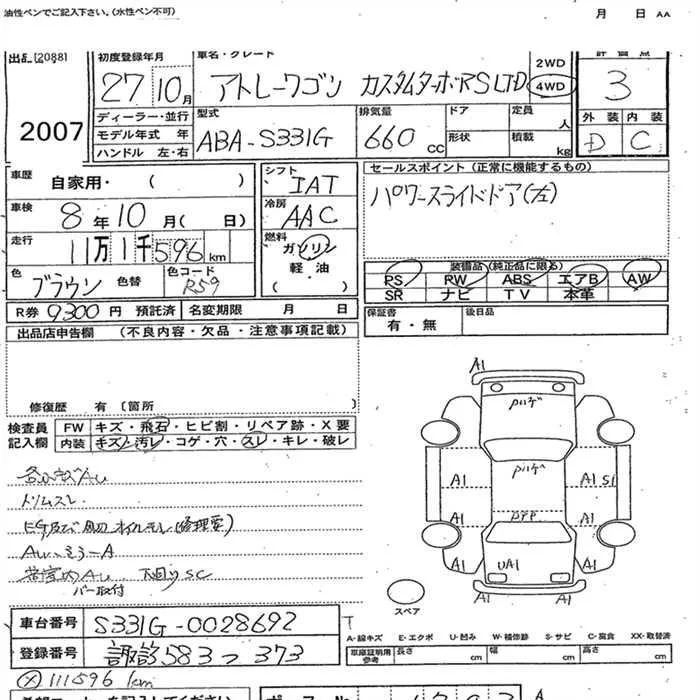 油性ペンでご記入下さい。(水性ペン不可)
月 日 AA
出品 [2088]
初度登録年月 車名・グレード
27 10月 アトレーワゴン カスタムターボRS LTD
2WD
4WD
3
ディーラー・並行
モデル年式 年
ハンドル 左・右
2007
型式 ABA-S331G
排気量 660 cc
ドア
形状
定員 人
積載 kg
外装 内装
D C
車歴 自家用・( )
車検 8年10月( 日)
走行 11万1千596km
色 ブラウン 色替 色コード R59
シフト IAT
冷房 AAC
燃料 ガソリン
軽・油
( )
セールスポイント (正常に機能するもの)
パワースライドドア(左)
装備品 (純正品に限る)
PS RW ABS エアB AW
SR ナビ TV 本革
R券 9300円 預託済 名変期限 月 日
保証書 有・無
後日品
出品店申告欄 (不良内容・欠品・注意事項記載)
修復歴 有 〔箇所
検査員記入欄
FW キズ・飛石・ヒビ割・リペア跡・X要
内装 キズ・汚レ・コゲ・穴・スレ・キレ・破レ
トリムスレ
下回りSC
バー取付
A1
A1 A1 S1
A1 A1
UA1
A1 A1
A1 A1
スペア
車台番号 S331G-0028692
登録番号 諏訪583つ373
111596 km
A-線キズ E-エクボ U-凹み W-補修跡 S-サビ C-腐食 XX-取替済
車庫証明用参考 長さ cm 幅 cm 高さ cm